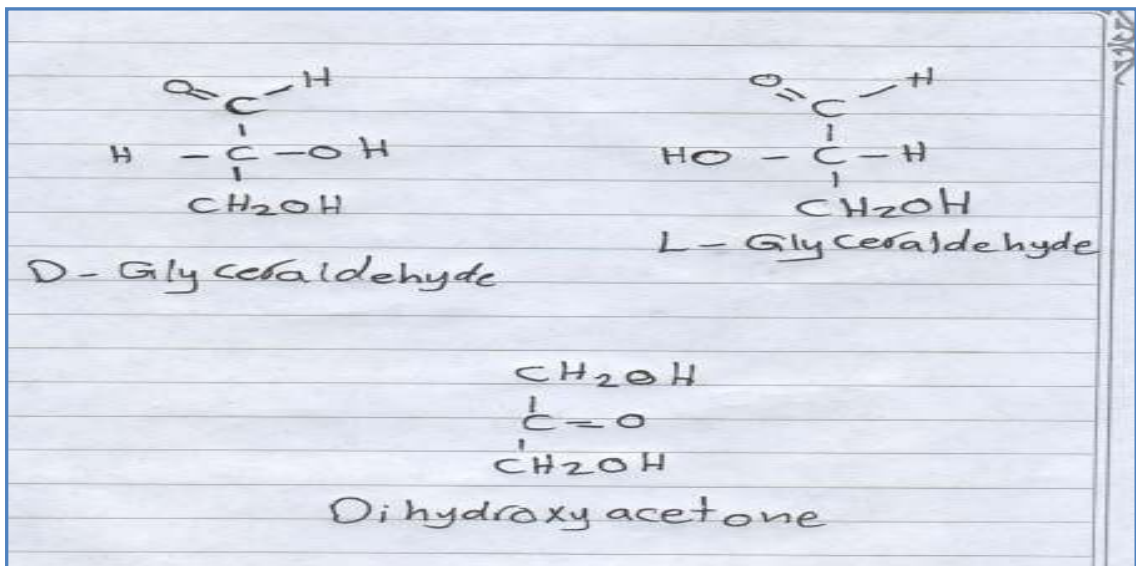 O = C - H
H - C - OH
CH2OH
D - Glyceraldehyde
O = C - H
HO - C - H
CH2OH
L - Glyceraldehyde
CH2OH
C = O
CH2OH
Dihydroxyacetone